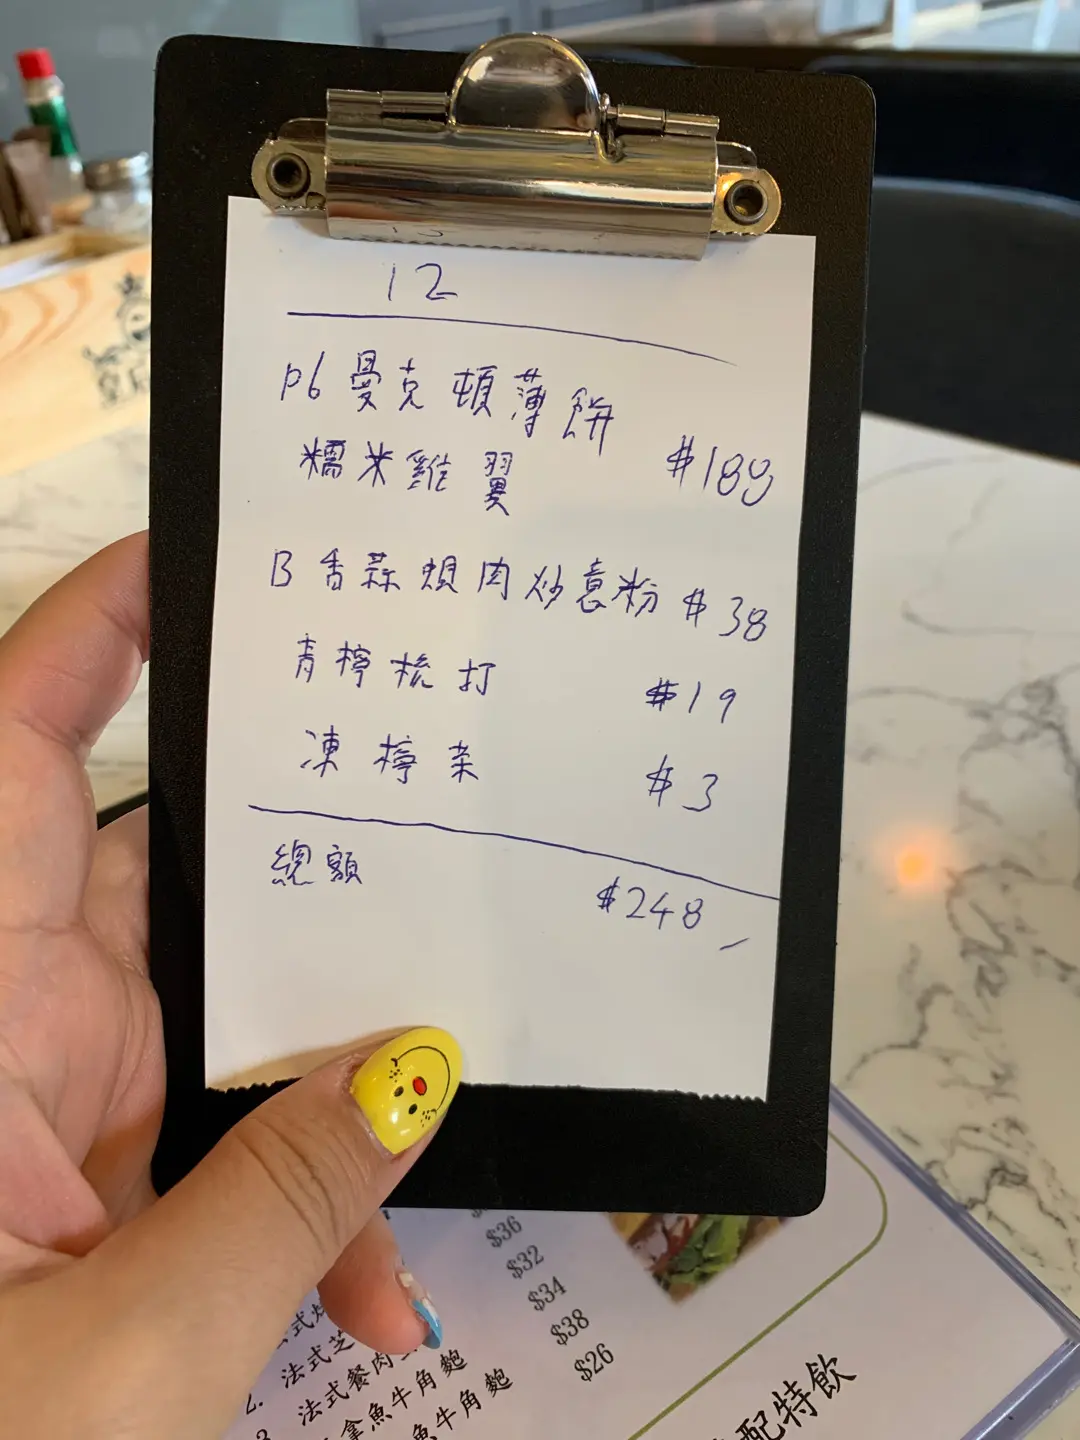 12
P6 曼克頓薄餅
糯米雞翼 $188
B 香蒜蜆肉炒意粉 $38
青檸梳打 $19
凍檸茶 $3
總額 $248
$36
$32
$34
$38
$26
法式芝
法式餐肉
拿魚牛角麭
魚牛角麭
配特飲